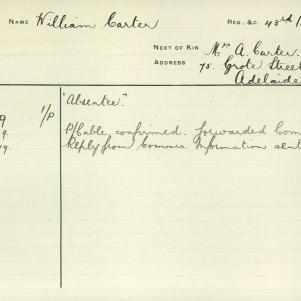 NAME William Carter REG., &C. 43rd
NEXT OF KIN Mrs A. Carter.
ADDRESS 75. Grote Street
Adelaide
9 1/P "Absentee."
9. P/Cable confirmed. Forwarded Com
19. Reply from Commrs. Information sent